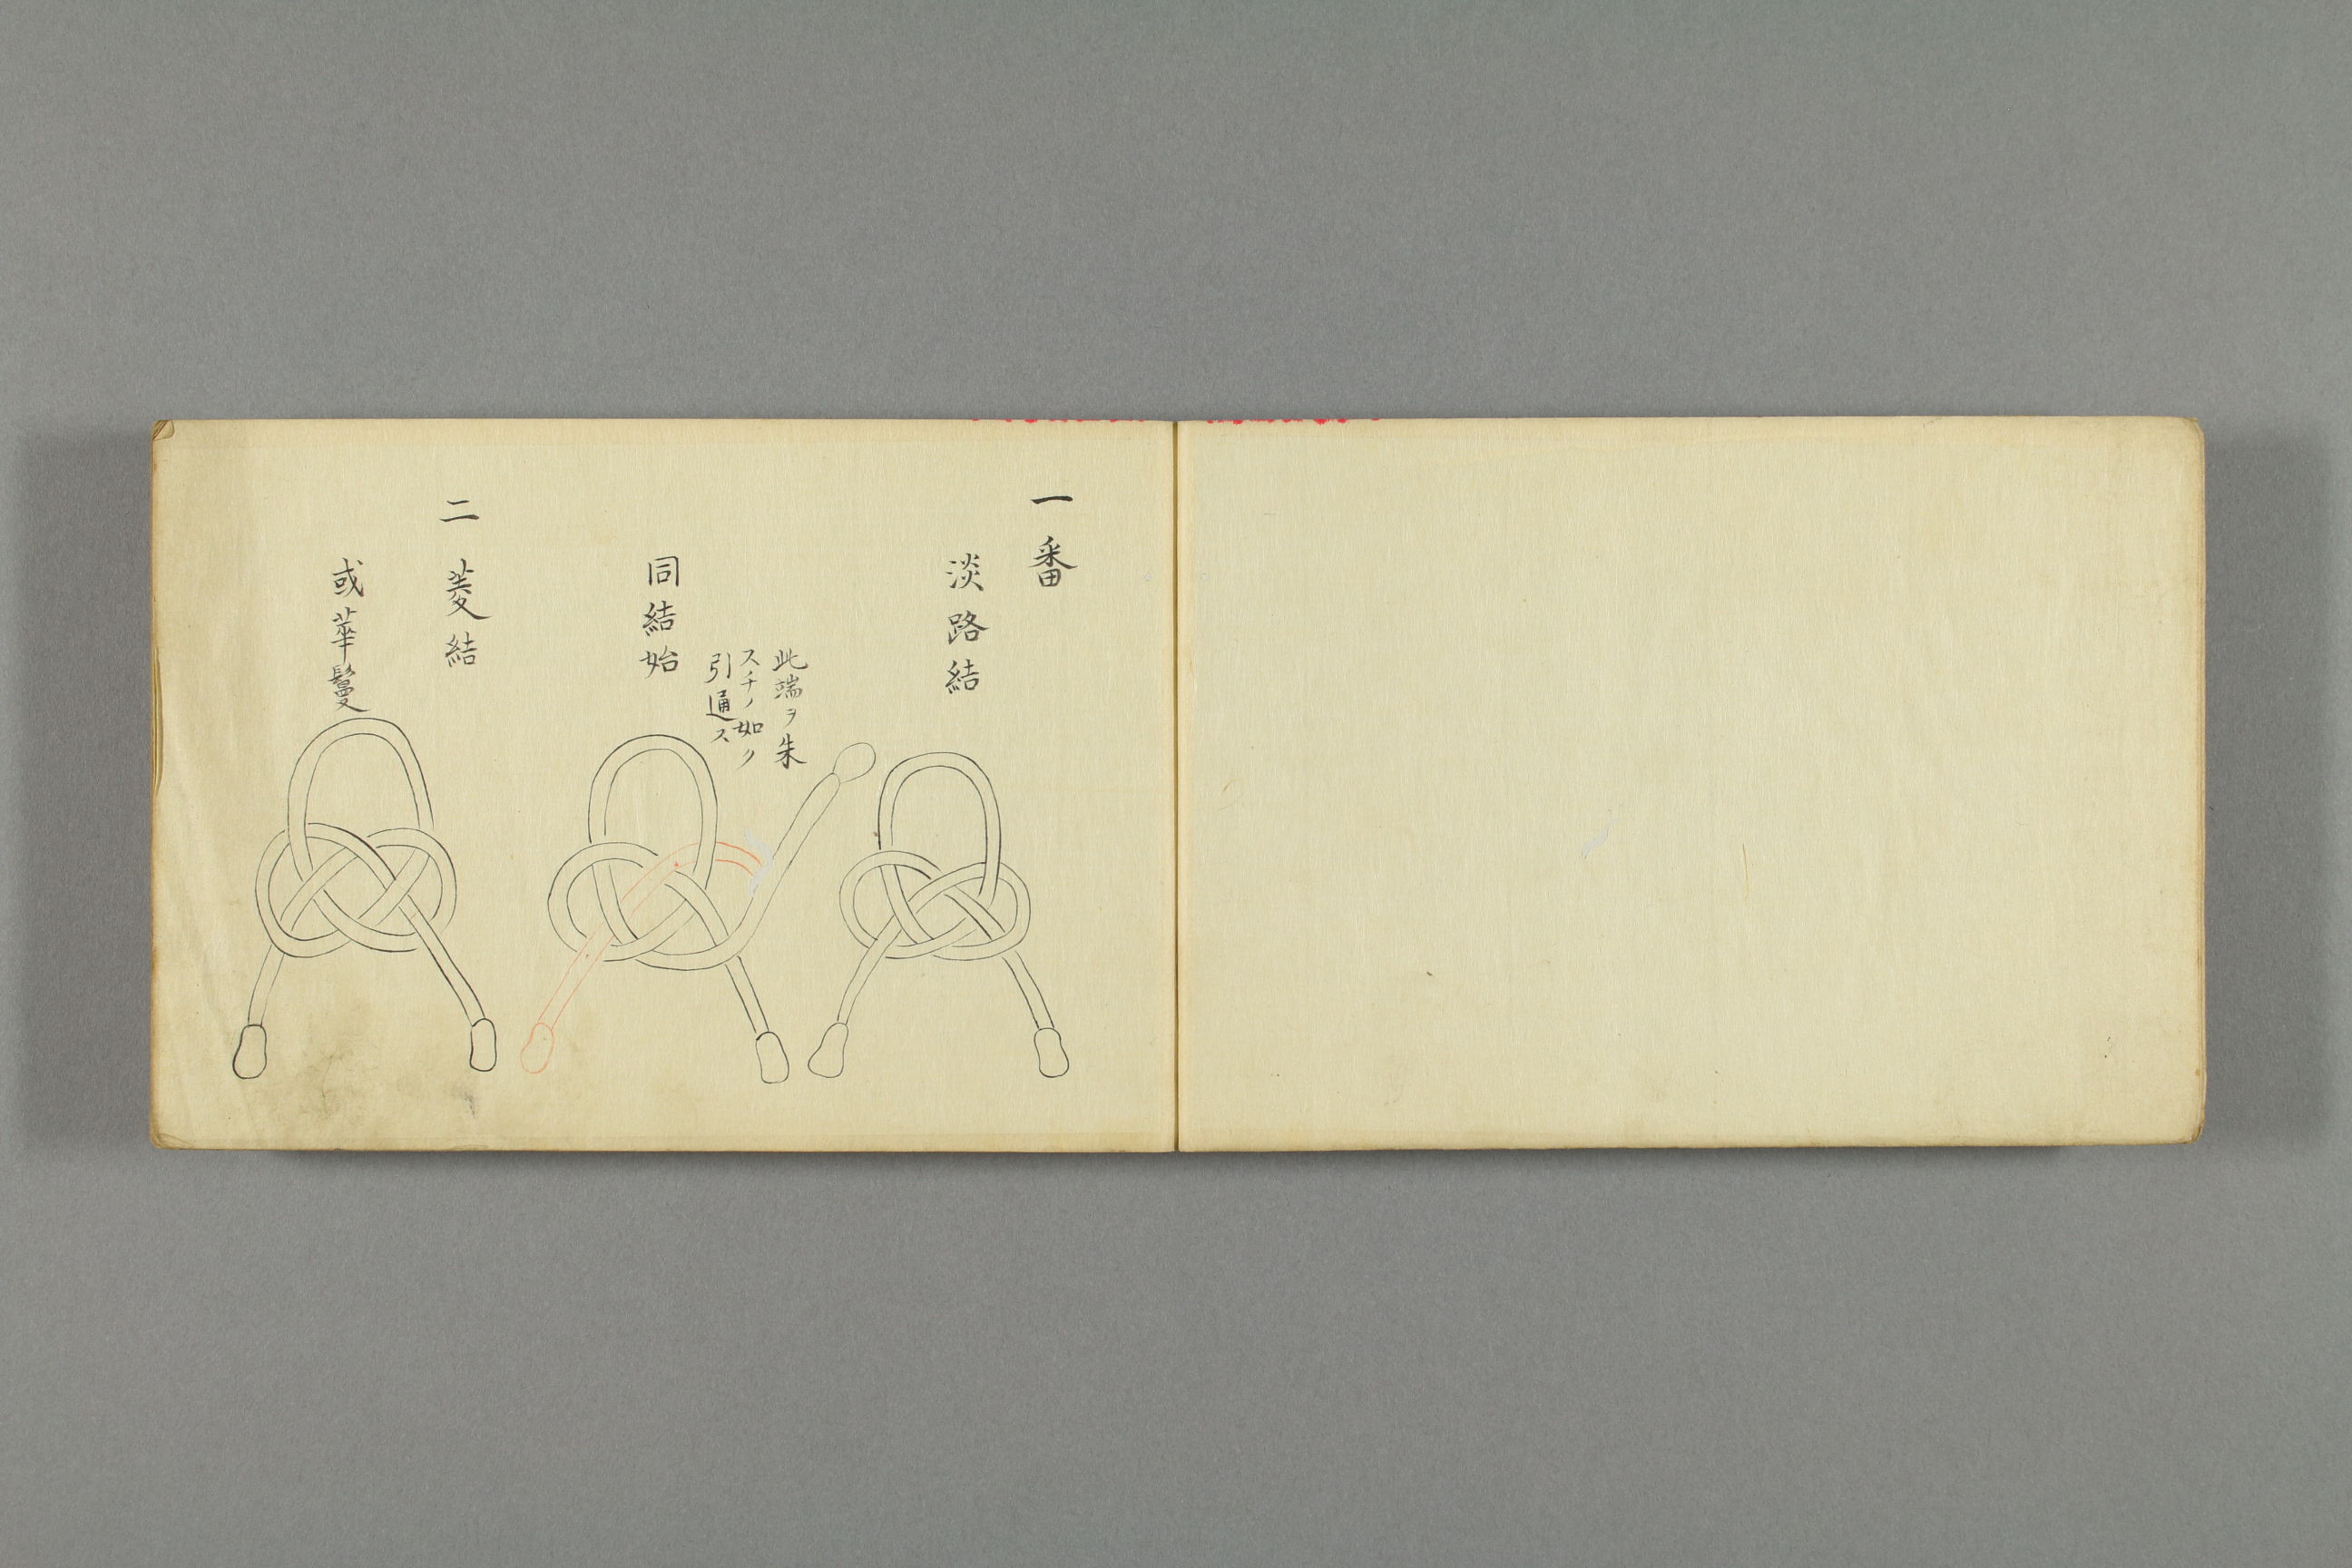 一番
淡路結
此端ヲ朱
スチノ如ク
引通ス
同結始
二 菱結
或華鬘